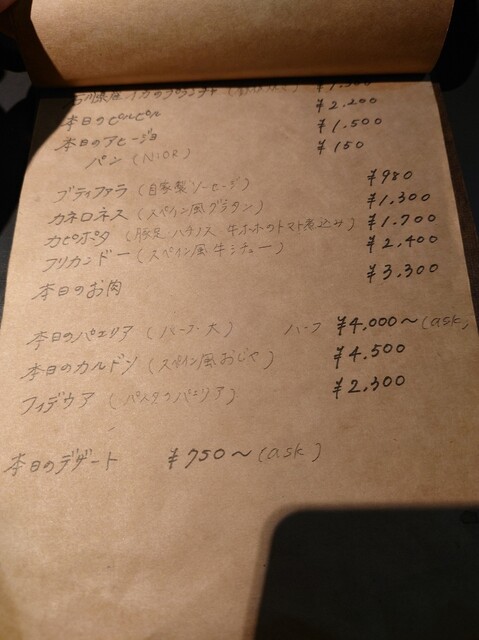 石川県産イカのプランチャ ¥1,500
本日のピルピル ¥2,200
本日のアヒージョ ¥1,500
パン (NIOR) ¥150
ブティファラ (自家製ソーセージ) ¥980
カネロネス (スペイン風グラタン) ¥1,300
カピポタ (豚足・ハチノス 牛ホホのトマト煮込み) ¥1,700
フリカンドー (スペイン風牛シチュー) ¥2,400
本日のお肉 ¥3,300
本日のパエリア (ハーフ・大) ハーフ ¥4,000〜 (ask)
本日のカルドソ (スペイン風おじや) ¥4,500
フィデウア (パスタのパエリア) ¥2,300
本日のデザート ¥750〜 (ask)